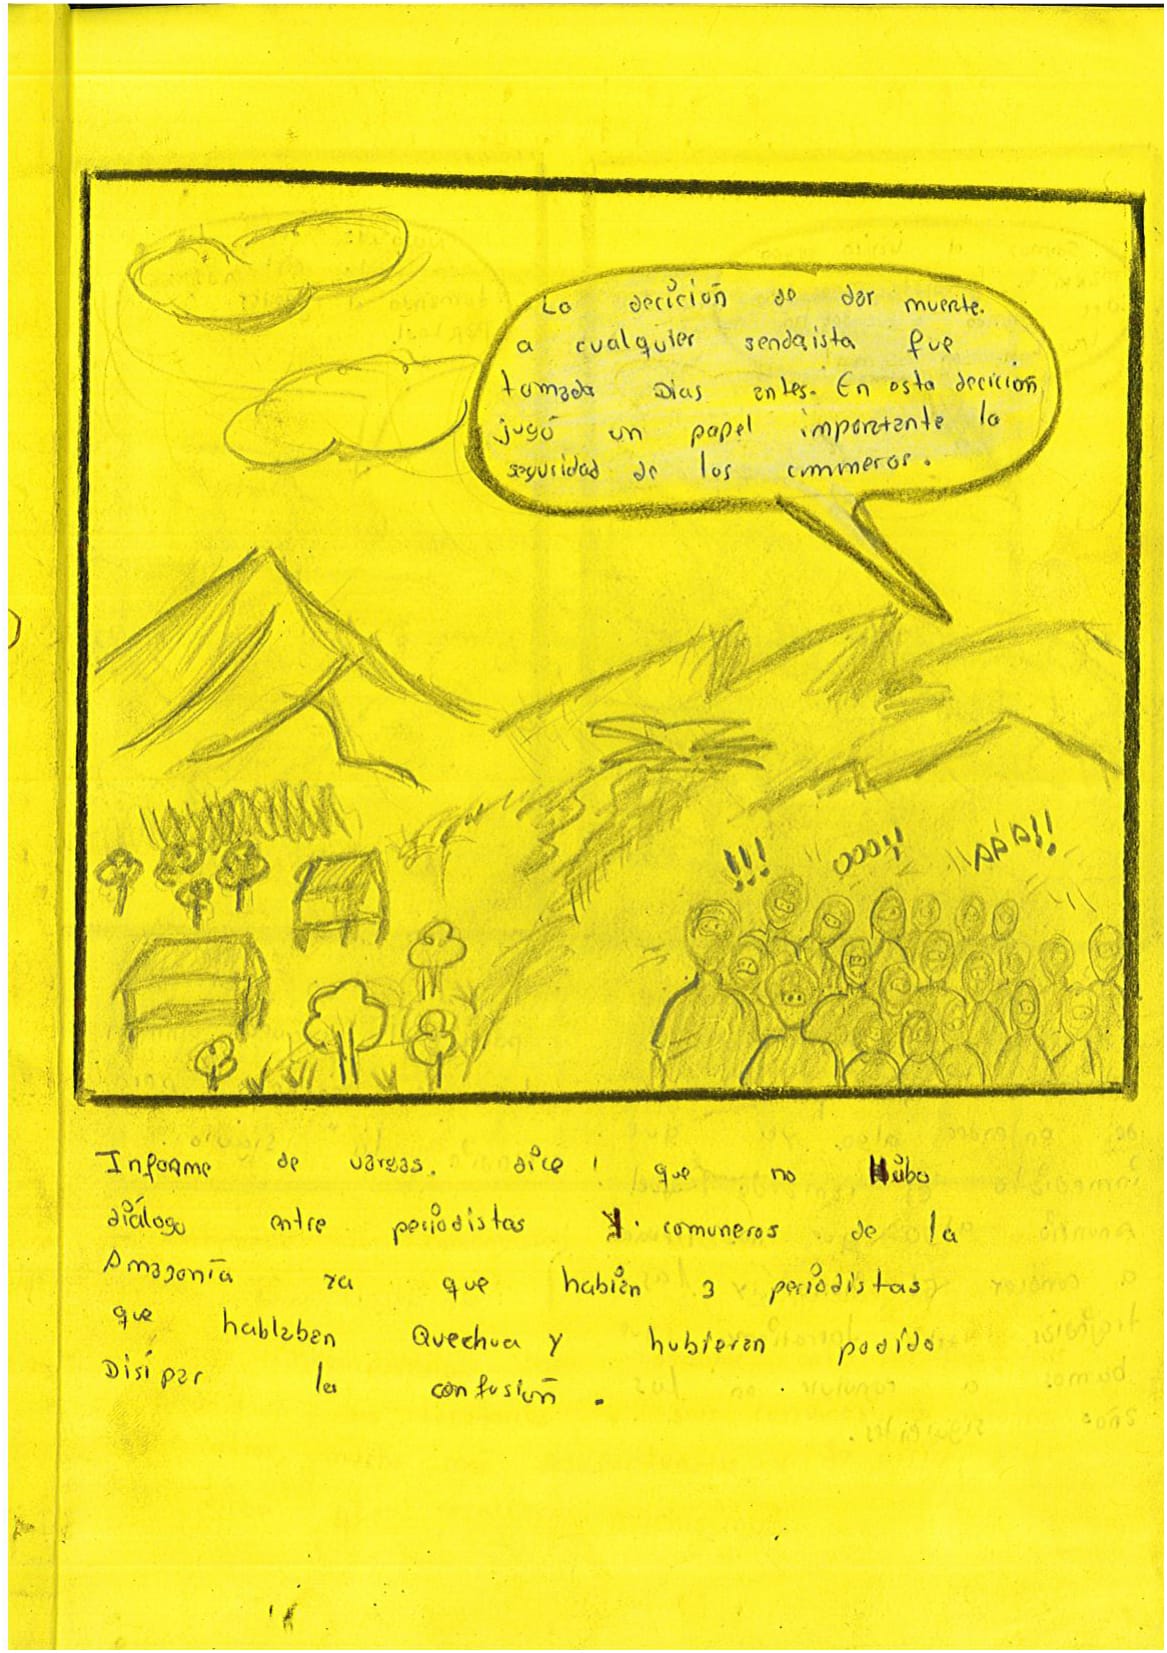 La decición de dar muerte.
a cualquier sendaista fue
tomada Dias antes. En esta decición
jugó un papel imporatante la
seguridad de los commeros.
!!! OOOO!! AAA!!
Informe de vargas. dice! que no Hubo
diálogo entre periodistas Y. comuneros de la
Amazonía ya que habían 3 periodistas
que hablaban Quechua y hubieran podido
Disipar la confusión.